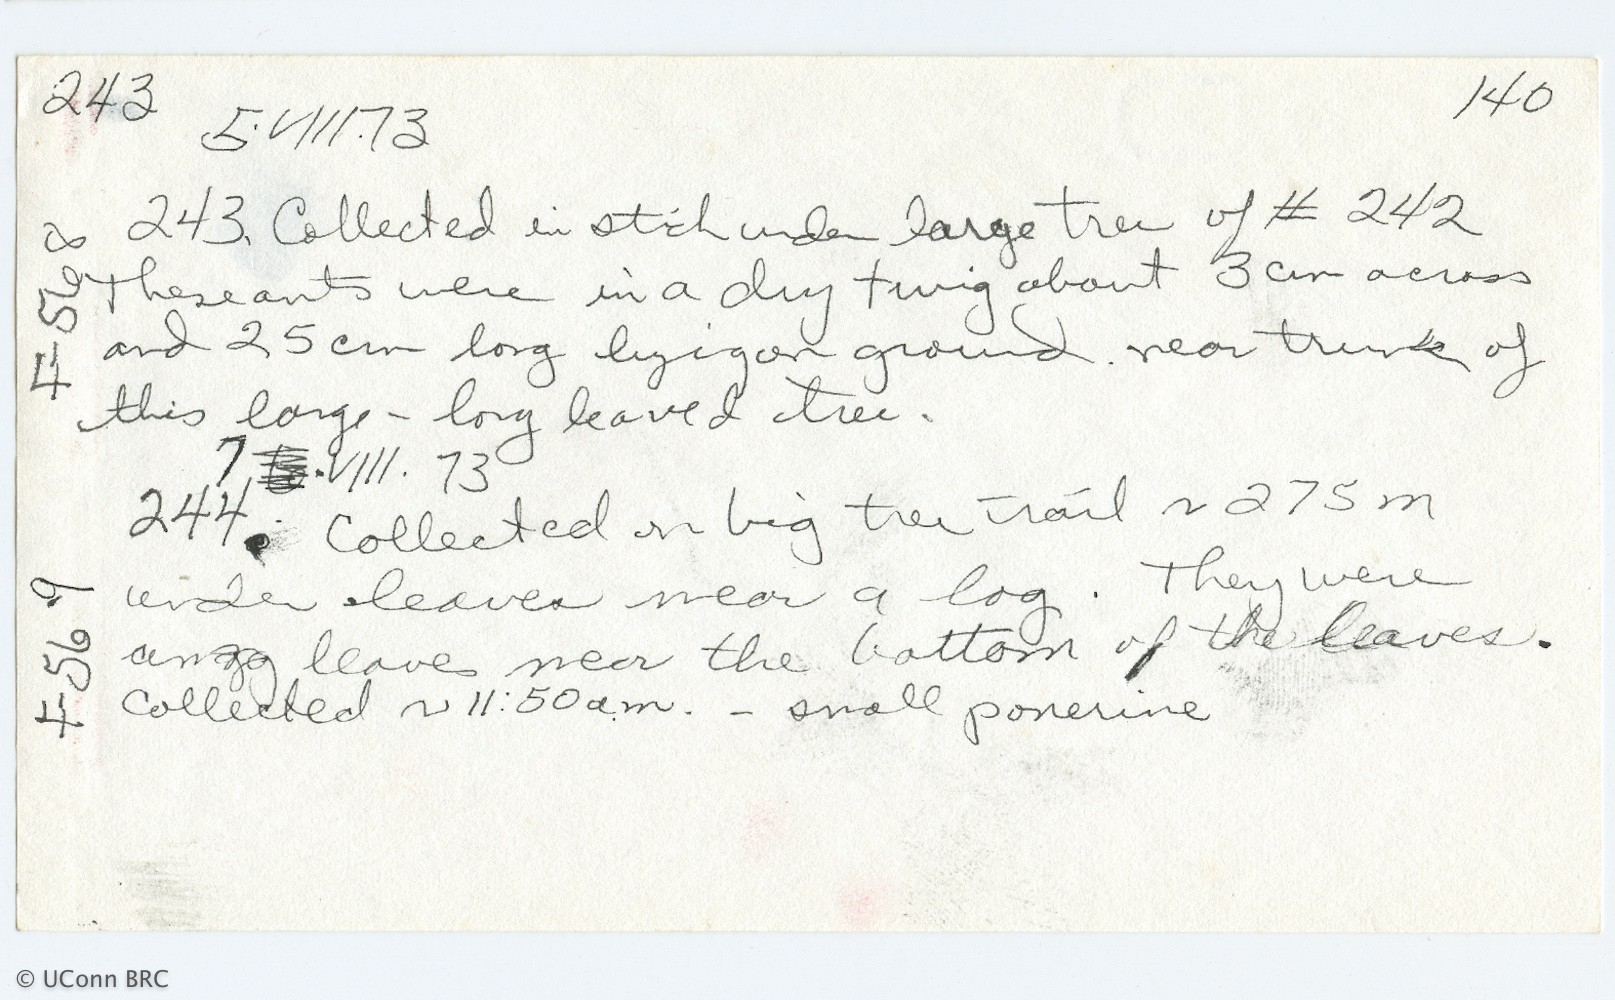 243
140
5.VIII.73
243. Collected in stick under large tree of # 242
These ants were in a dry twig about 3 cm across
and 25 cm long lyzig on ground near trunk of
this large - long leaved tree.
7 .VIII. 73
244. Collected on big tree trail ~ 275 m
under leaves near a log. They were
leaves near the bottom of the leaves.
Collected ~ 11:50 a.m. - small ponerine
F-568
F-569
© UConn BRC